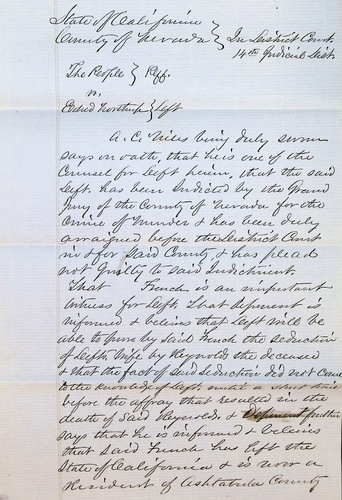 State of California
County of Nevada } In District Court
14th Judicial Dist.
The People } Plff.
vs.
Northup } Deft
A. C. Niles being duly sworn
says on oath, that he is one of the
Counsel for Deft herein, that the said
Deft. has been Indicted by the Grand
Jury of the County of Nevada for the
crime of Murder & has been duly
arraigned before the District Court
in & for said County & has plead
not Guilty to said Indictment.
That French is an important
witness for Deft. That deponent is
informed & believes that Deft will be
able to prove by said French the seduction
of Defts Wife by Reynolds the deceased
& that the fact of said seduction did not come
to the knowledge of Deft. until a short time
before the affray that resulted in the
death of said Reynolds & deponent further
says that he is informed & believes
that said French has left the
State of California & is now a
Resident of Ashtabula County